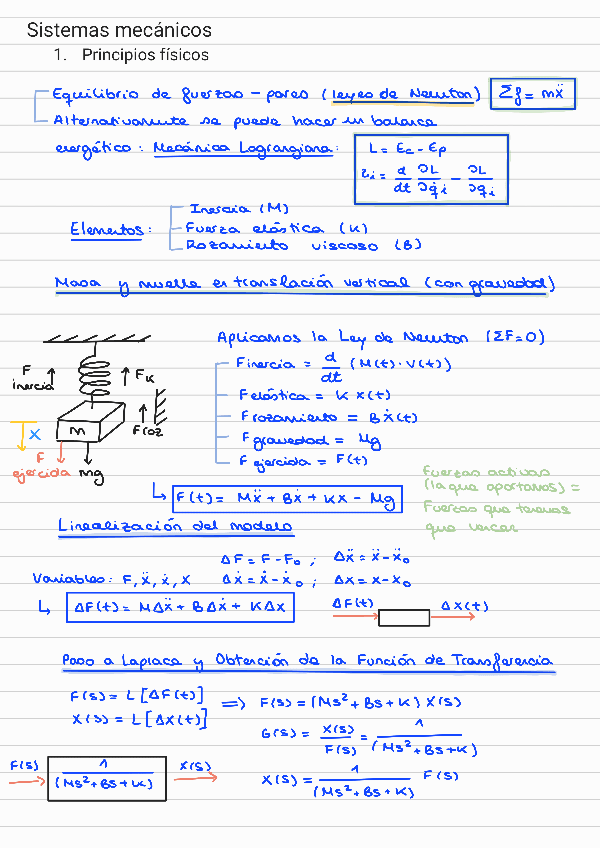 Sistemas mecánicos
1. Principios físicos
Equilibrio de fuerzas - pares (leyes de Newton) Σf = mẍ
Alternativamente se puede hacer un balance
energético: Mecánica Lagrangiana:
L = Ec - Ep
τi = d/dt ∂L/∂q̇i - ∂L/∂qi
Elementos:
Inercia (M)
Fuerza elástica (K)
Rozamiento viscoso (B)
Masa y muelle en translación vertical (con gravedad)
Aplicamos la Ley de Newton (ΣF=0)
F inercia = d/dt (M(t)·V(t))
F elástica = K x(t)
F rozamiento = Bẋ(t)
F gravedad = Mg
F ejercida = F(t)
F inercia
FK
Froz
M
X
F ejercida
mg
↳ F(t) = Mẍ + Bẋ + Kx - Mg
Fuerzas activas
(la que aportamos) =
Fuerzas que tenemos
que vencer
Linealización del modelo
ΔF = F - F₀ ; Δẍ = ẍ - ẍ₀
Variables: F, ẍ, ẋ, x Δẋ = ẋ - ẋ₀ ; Δx = x - x₀
↳ ΔF(t) = MΔẍ + BΔẋ + KΔx
ΔF(t) ΔX(t)
Paso a Laplace y Obtención de la Función de Transferencia
F(s) = L[ΔF(t)]
X(s) = L[ΔX(t)]
⇒ F(s) = (Ms² + Bs + K) X(s)
G(s) = X(s)/F(s) = 1/(Ms² + Bs + K)
F(s) 1/(Ms² + Bs + K) X(s)
X(s) = 1/(Ms² + Bs + K) F(s)